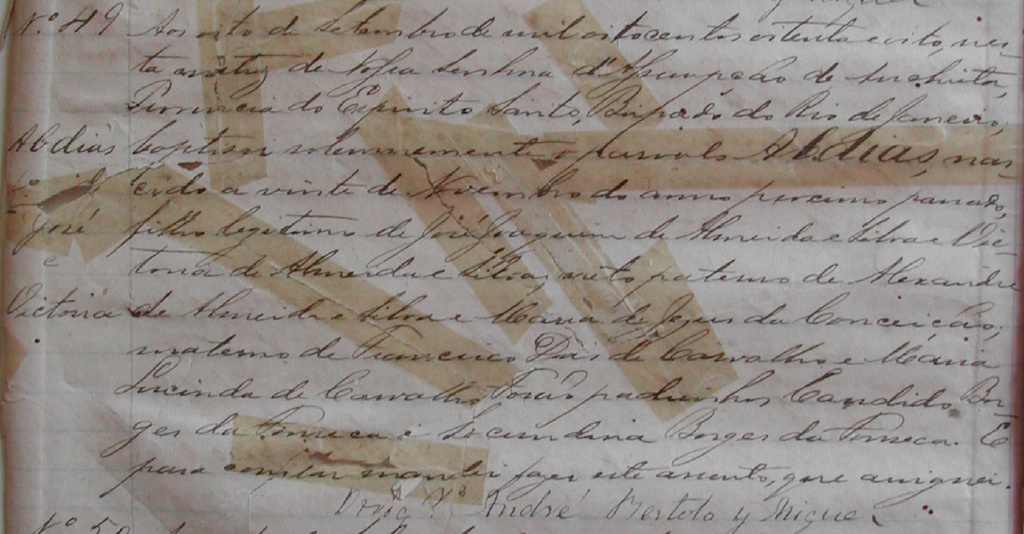 Nº 49 Aos oito de Setembro de mil oitocentos oitenta e oito, nes-
ta matriz de Nossa Senhora d'Assumpção de
Provincia do Espirito Santo, Bispado do Rio de Janeiro,
Abdias baptisei solemnemente o parvulo Abdias, nas-
cido a vinte de Novembro do anno proximo passado,
José filho legitimo de José Joaquim de Almeida e Silva e Vic-
e toria de Almeida e Silva, neto paterno de Alexandre
Victoria de Almeida e Silva e Maria de Jezus da Conceição,
materno de Francisco Dias de Carvalho e Maria
Lucinda de Carvalho. Forão padrinhos Candido Bor-
ges da Fonseca e Secundina Borges da Fonseca. E
para constar mandei fazer este assento, que assignei.
André Bertolo y Miguel
Nº 50